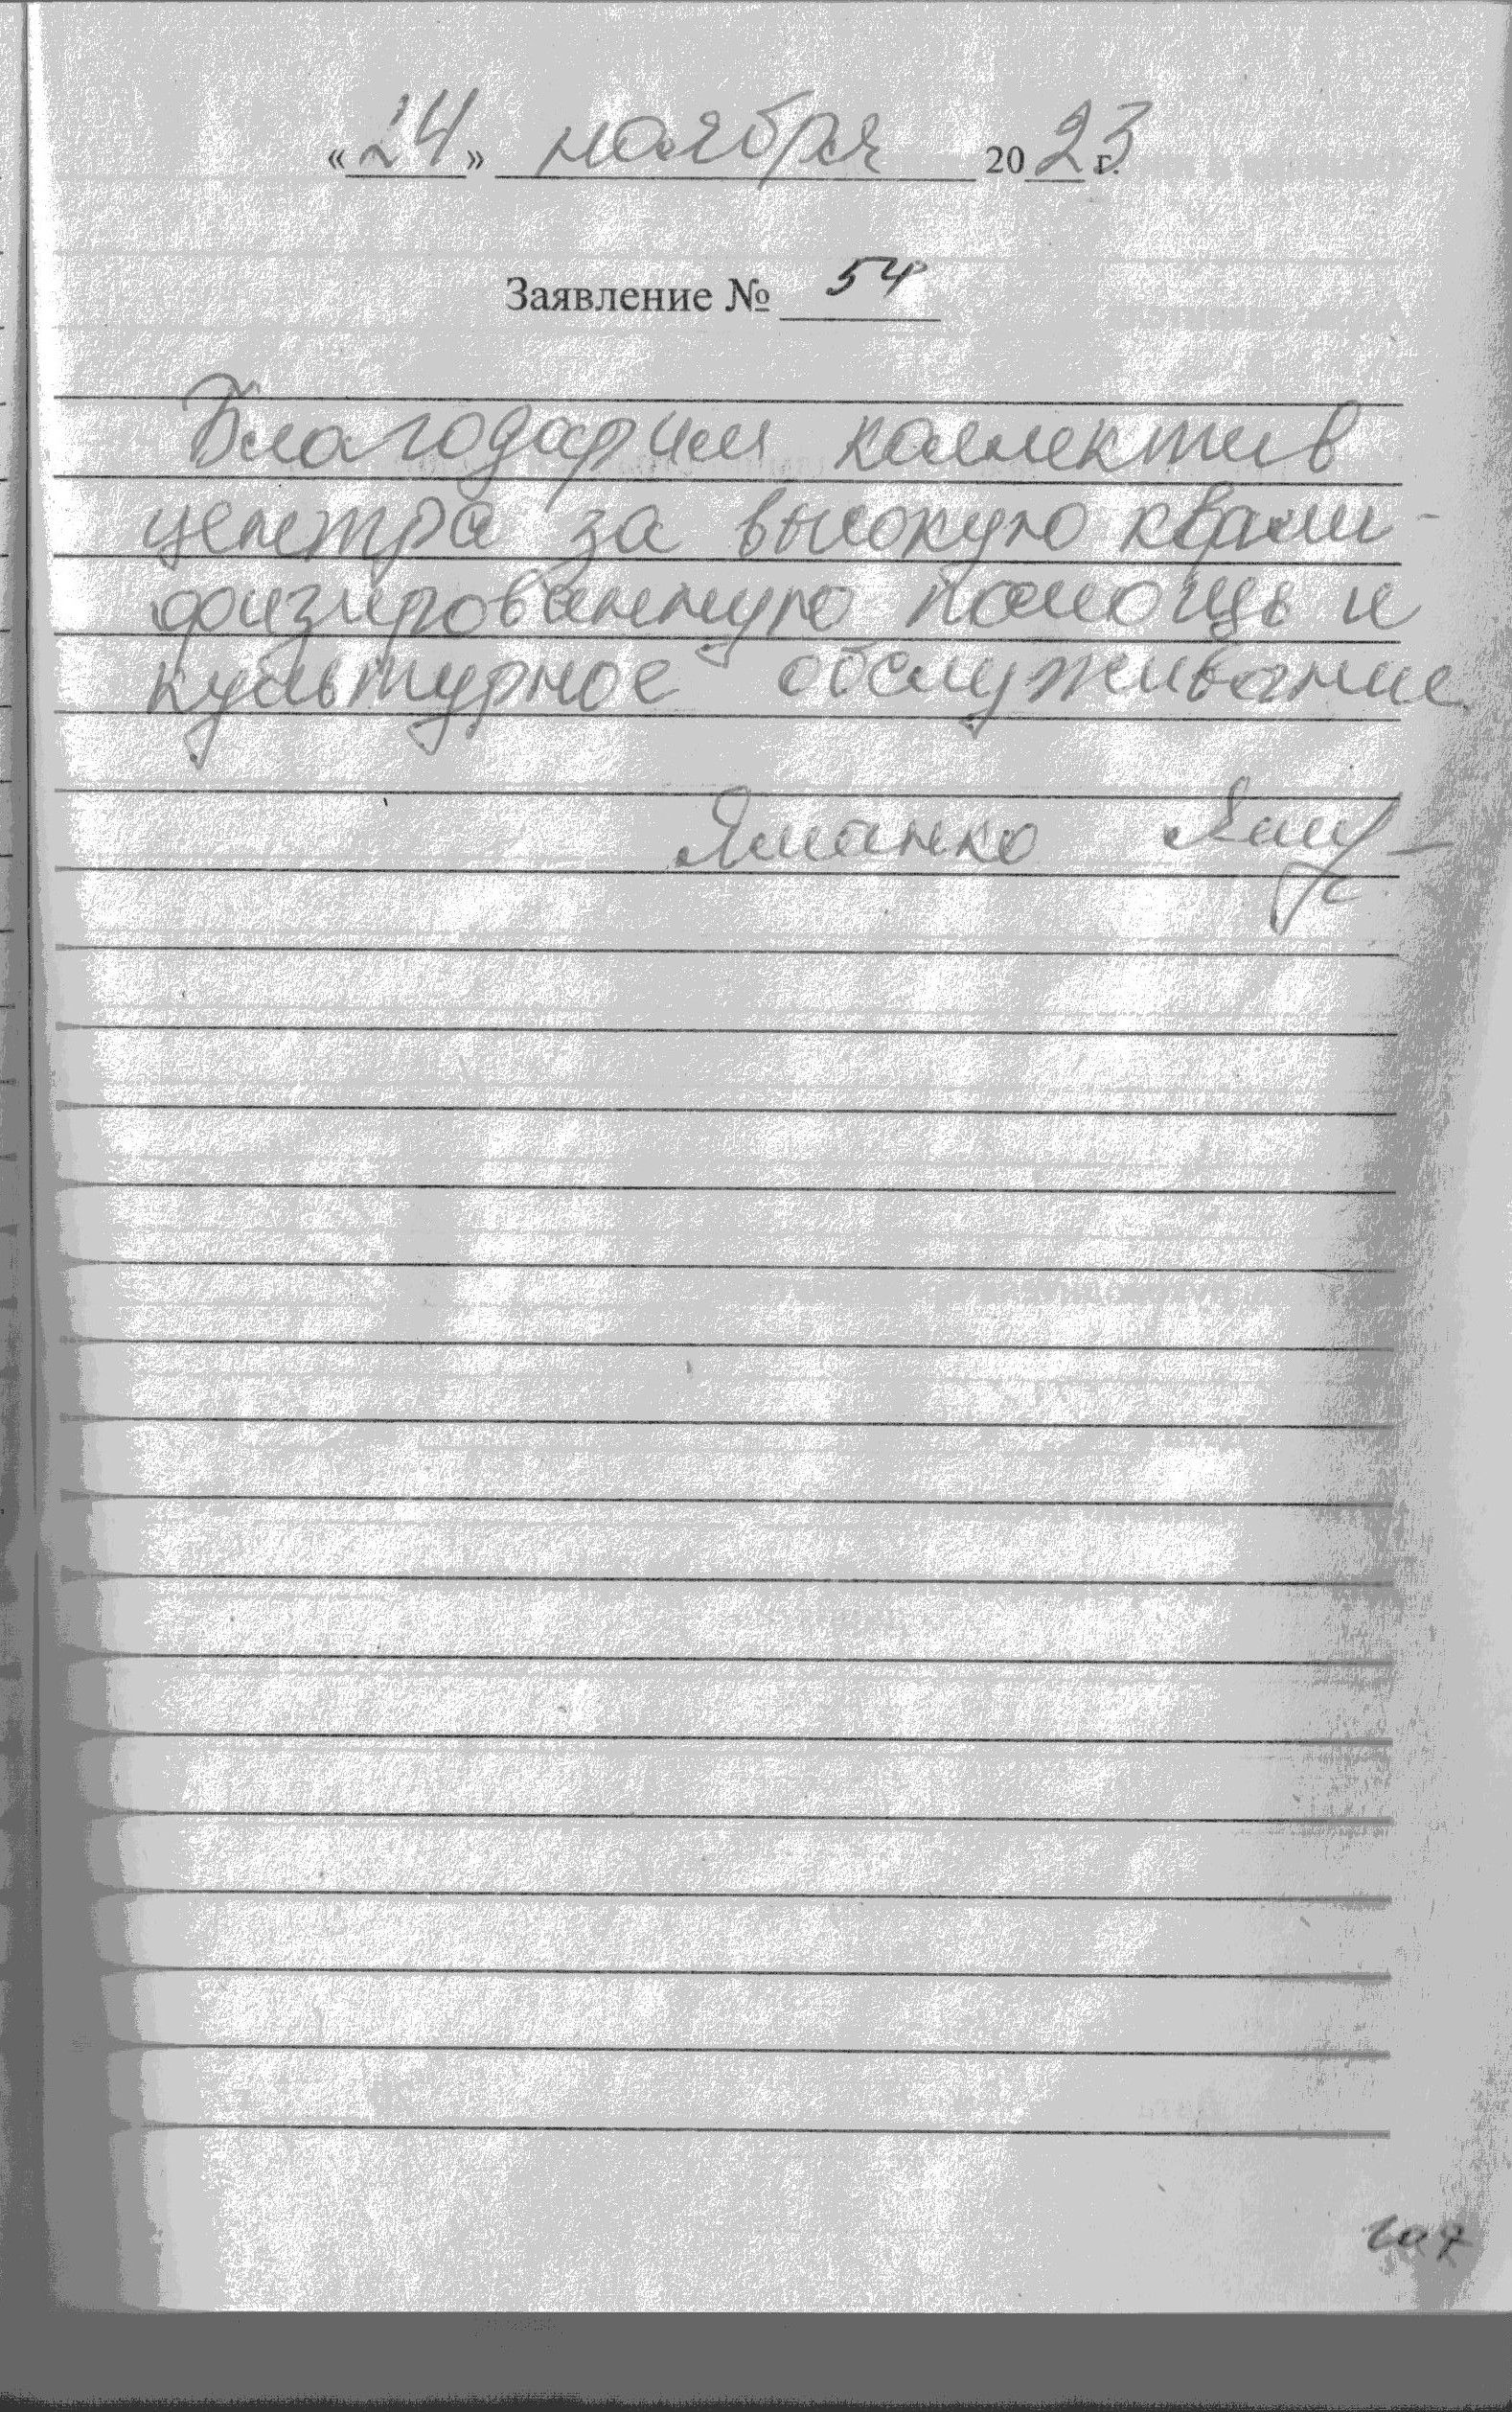 «24» ноября 2023 г.
Заявление № 54
Благодарим коллектив
центра за высокуюквали-
физированную помощь и
культурное обслуживание.
Яманко
107